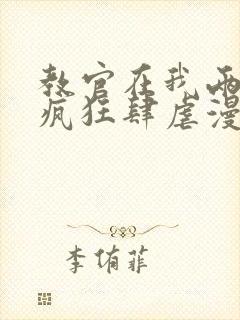 教官在我两
疯狂肆虐漫
李侑菲